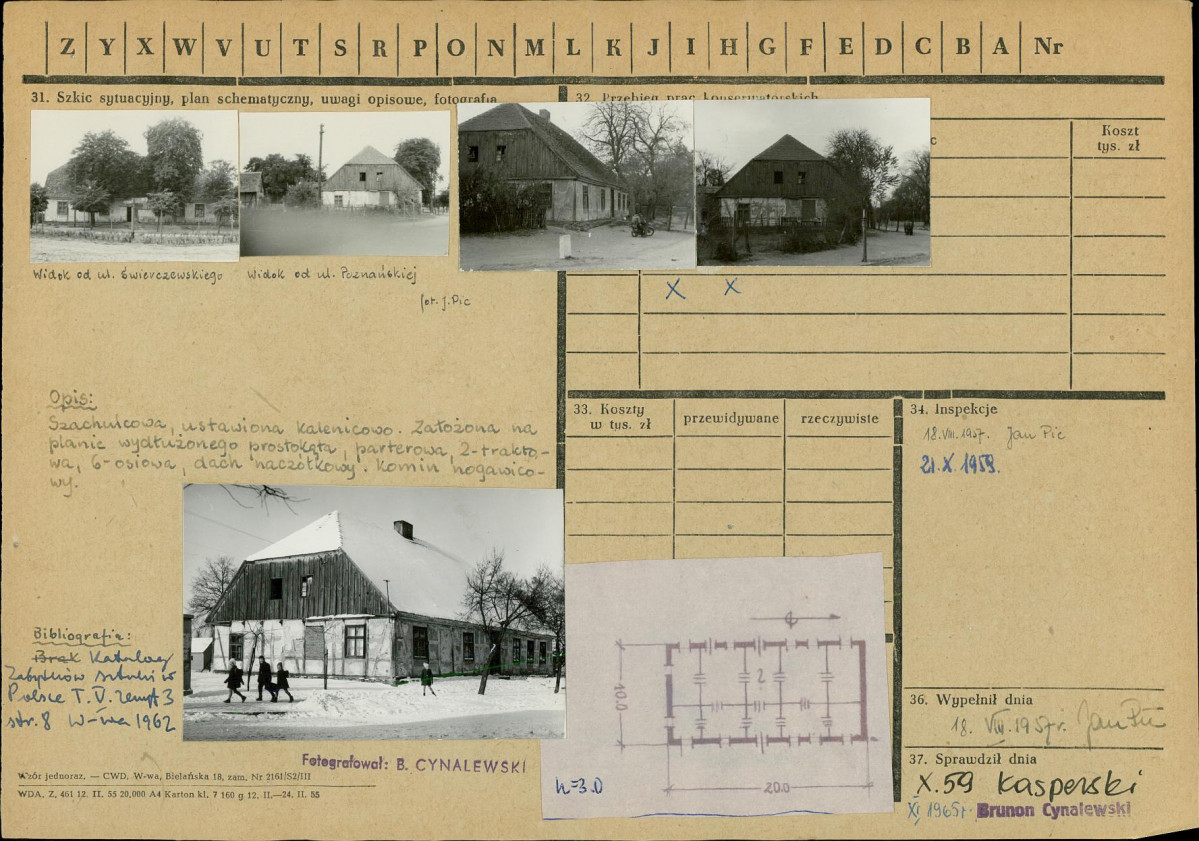 Z Y X W V U T S R P O N M L K J I H G F E D C B A Nr
31. Szkic sytuacyjny, plan schematyczny, uwagi opisowe, fotografia
32. Przebieg prac konserwatorskich
Koszt
tys. zł
Widok od ul. Świerczewskiego
Widok od ul. Poznańskiej
fot. J. Pic
X X
Opis:
Szachulcowa, ustawiona kalenicowo. Założona na
planie wydłużonego prostokąta, parterowa, 2-trakto-
wa, 6-osiowa, dach naczółkowy. Komin nogawico-
wy.
33. Koszty
w tys. zł
przewidywane
rzeczywiste
34. Inspekcje
18.VIII.1957. Jan Pic
21.X.1959.
Bibliografia:
Brak Katalog
Zabytków Sztuki w
Polsce T. V. zeszyt 3
str. 8 W-wa 1962
Fotografował: B. CYNALEWSKI
10.0
2
20.0
h=3.0
36. Wypełnił dnia
18. VIII. 1957r. Jan Pic
37. Sprawdził dnia
X.59 Kasperski
XI 1965r. Brunon Cynalewski
Wzór jednoraz. — CWD, W-wa, Bielańska 18, zam. Nr 2161/S2/III
WDA. Z. 461 12. II. 55 20,000 A4 Karton kl. 7 160 g 12. II.—24. II. 55